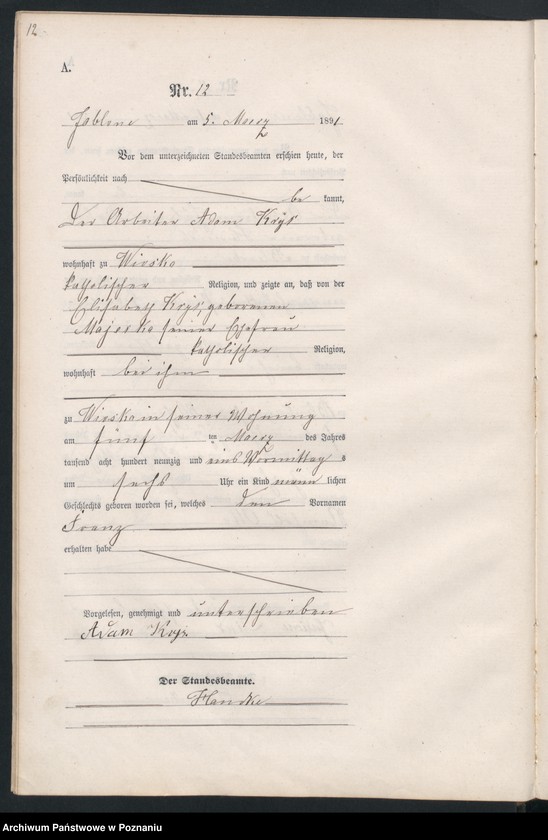 12
A.
Nr. 12
Jablone am 5. Maerz 1891
Vor dem unterzeichneten Standesbeamten erschien heute, der
Persönlichkeit nach
be kannt,
Der Arbeiter Adam Krys
wohnhaft zu Wiosko
katholischer Religion, und zeigte an, daß von der
Elisabeth Krys, geborenen
Majoska seiner Ehefrau
katholischer Religion,
wohnhaft bei ihm
zu Wiosko in seiner Wohnung
am fünf ten Maerz des Jahres
tausend acht hundert neunzig und eins Vormittag s
um sechs Uhr ein Kind männ lichen
Geschlechts geboren worden sei, welches den Vornamen
Franz
erhalten habe
Vorgelesen, genehmigt und unterschrieben
Adam Krys
Der Standesbeamte.
Handke
Archiwum Państwowe w Poznaniu